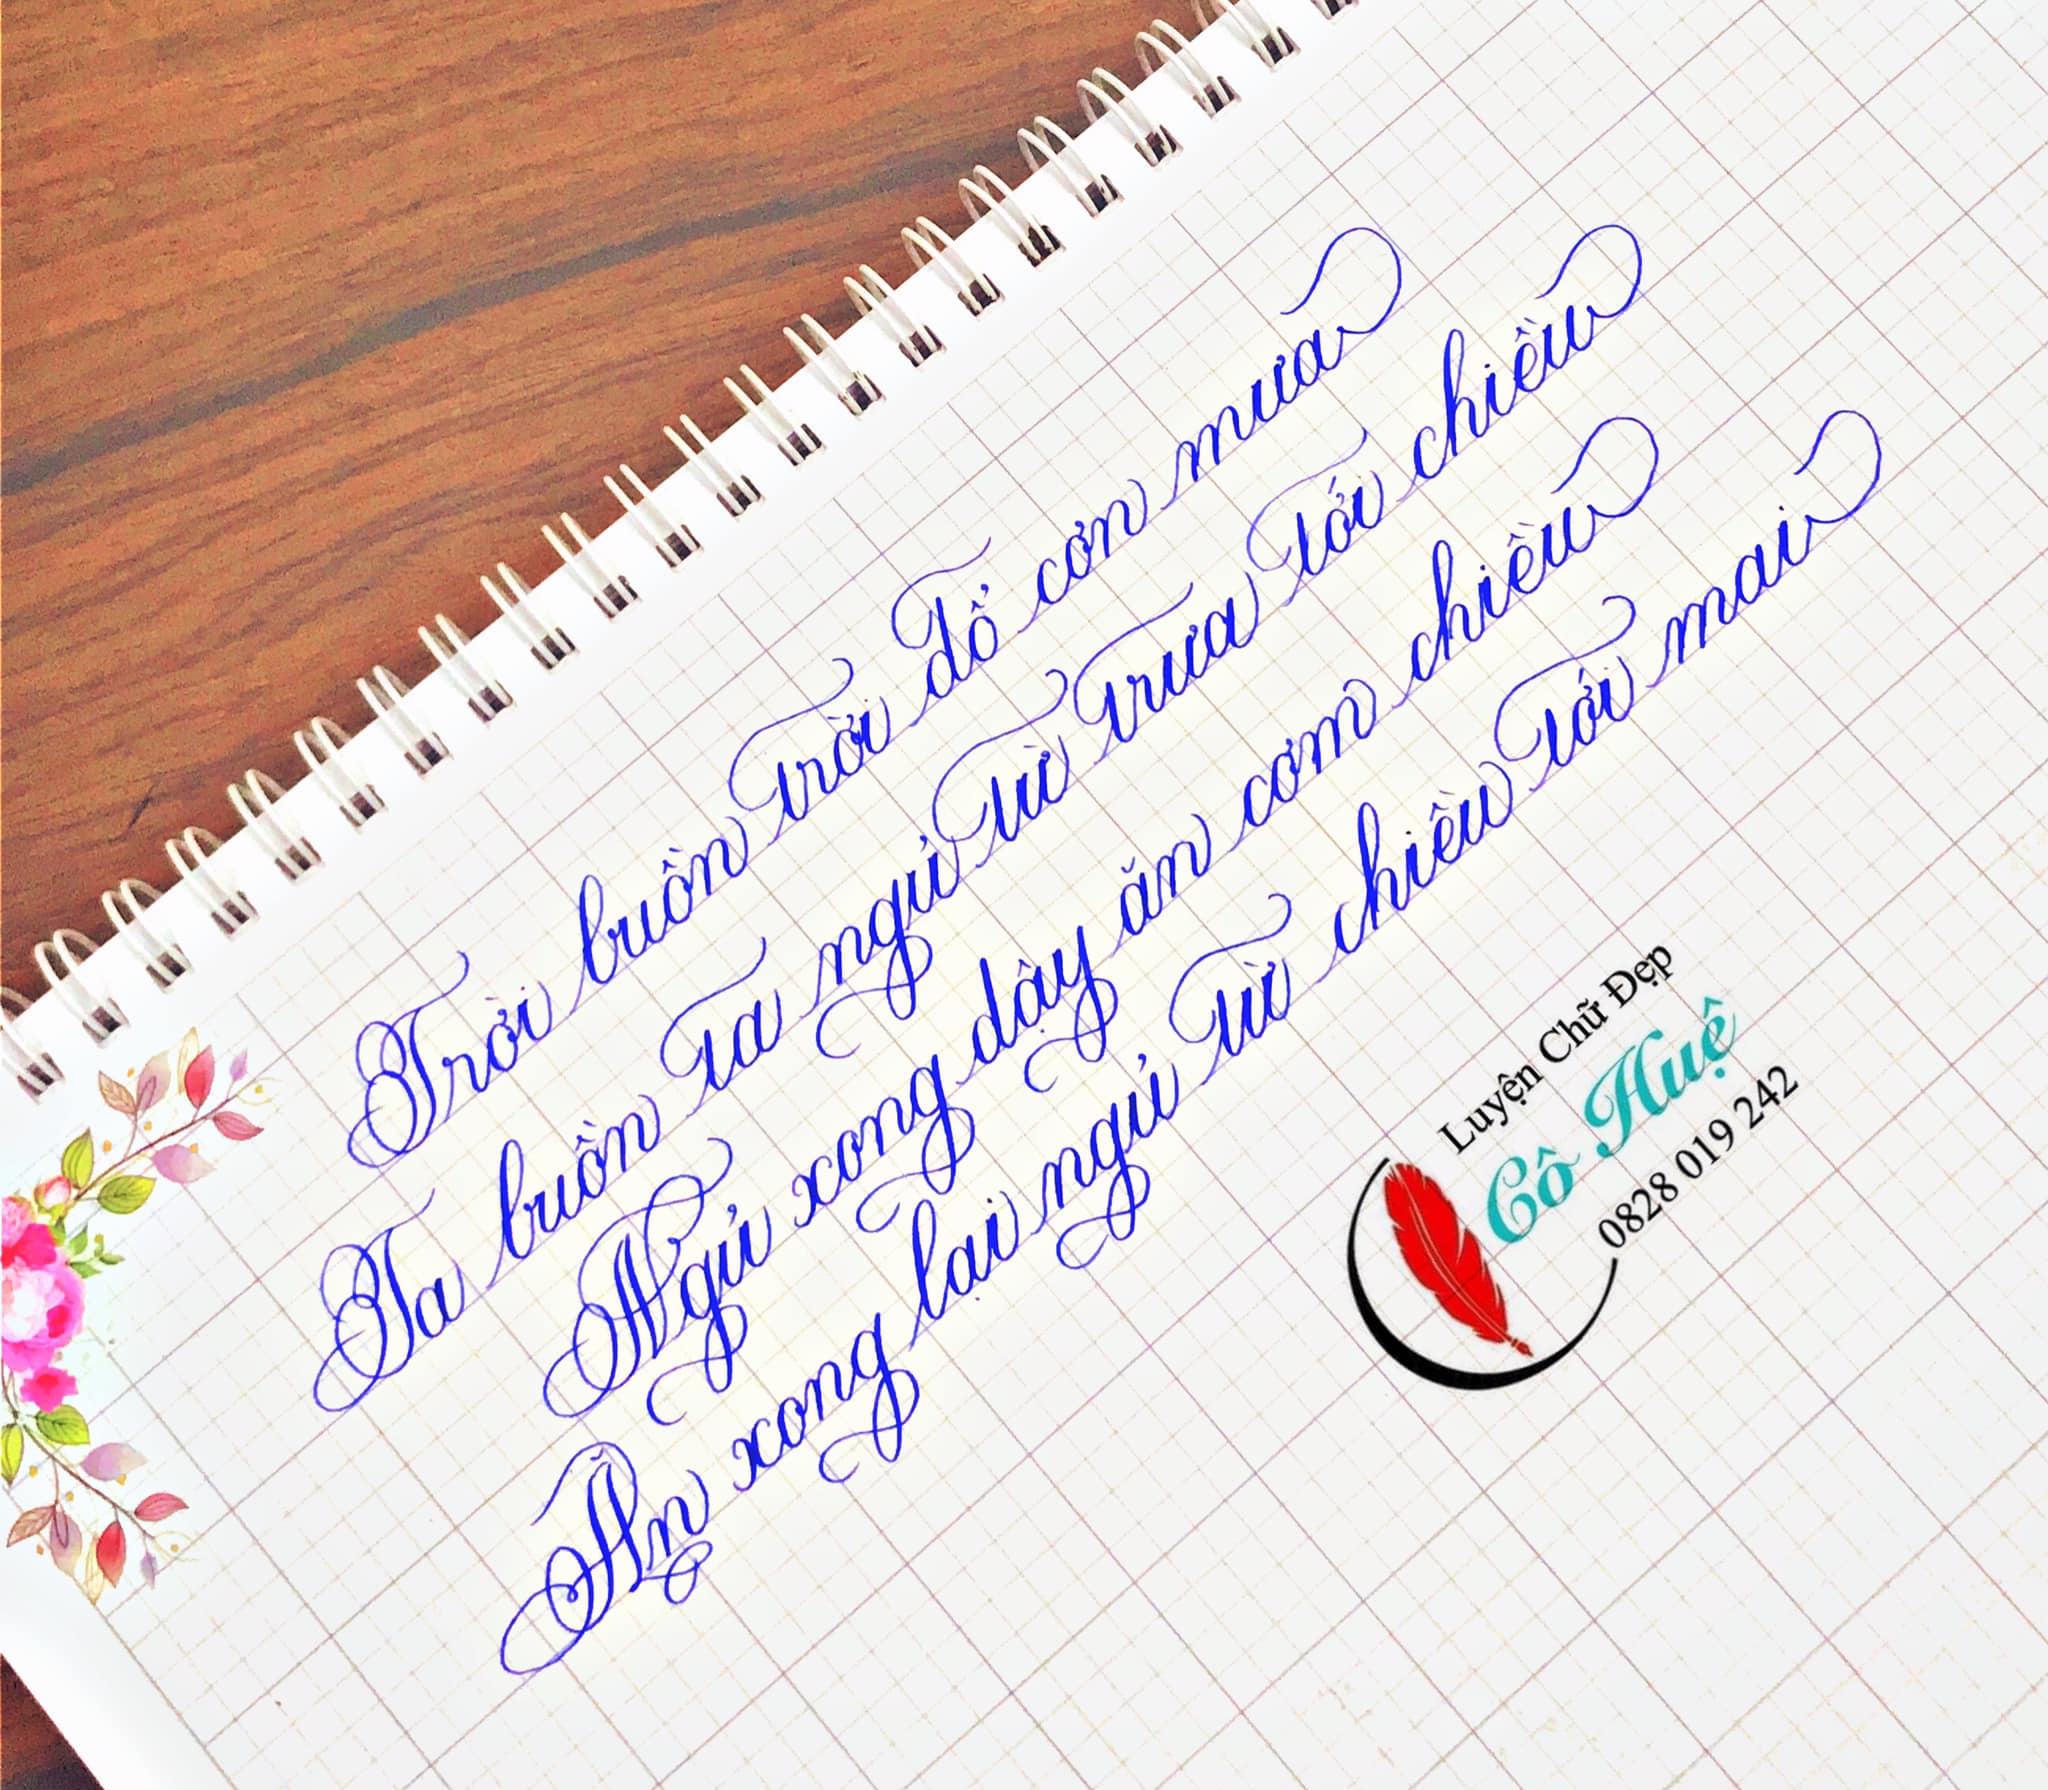 Trời buồn trời đổ cơn mưa
Ta buồn ta ngủ từ trưa tới chiều
Ngủ xong dậy ăn cơm chiều
Ăn xong lại ngủ từ chiều tới mai
Luyện Chữ Đẹp
Cô Huệ
0828 019 242